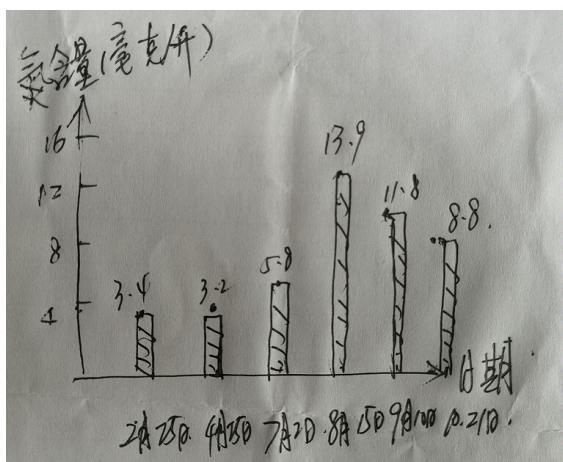 氮含量(毫克/升)
16
12
8
4
3.4
3.2
5.8
13.9
11.8
8.8.
日期
2月25日. 4月25日 7月2日. 8月15日 9月10日 10.21日.